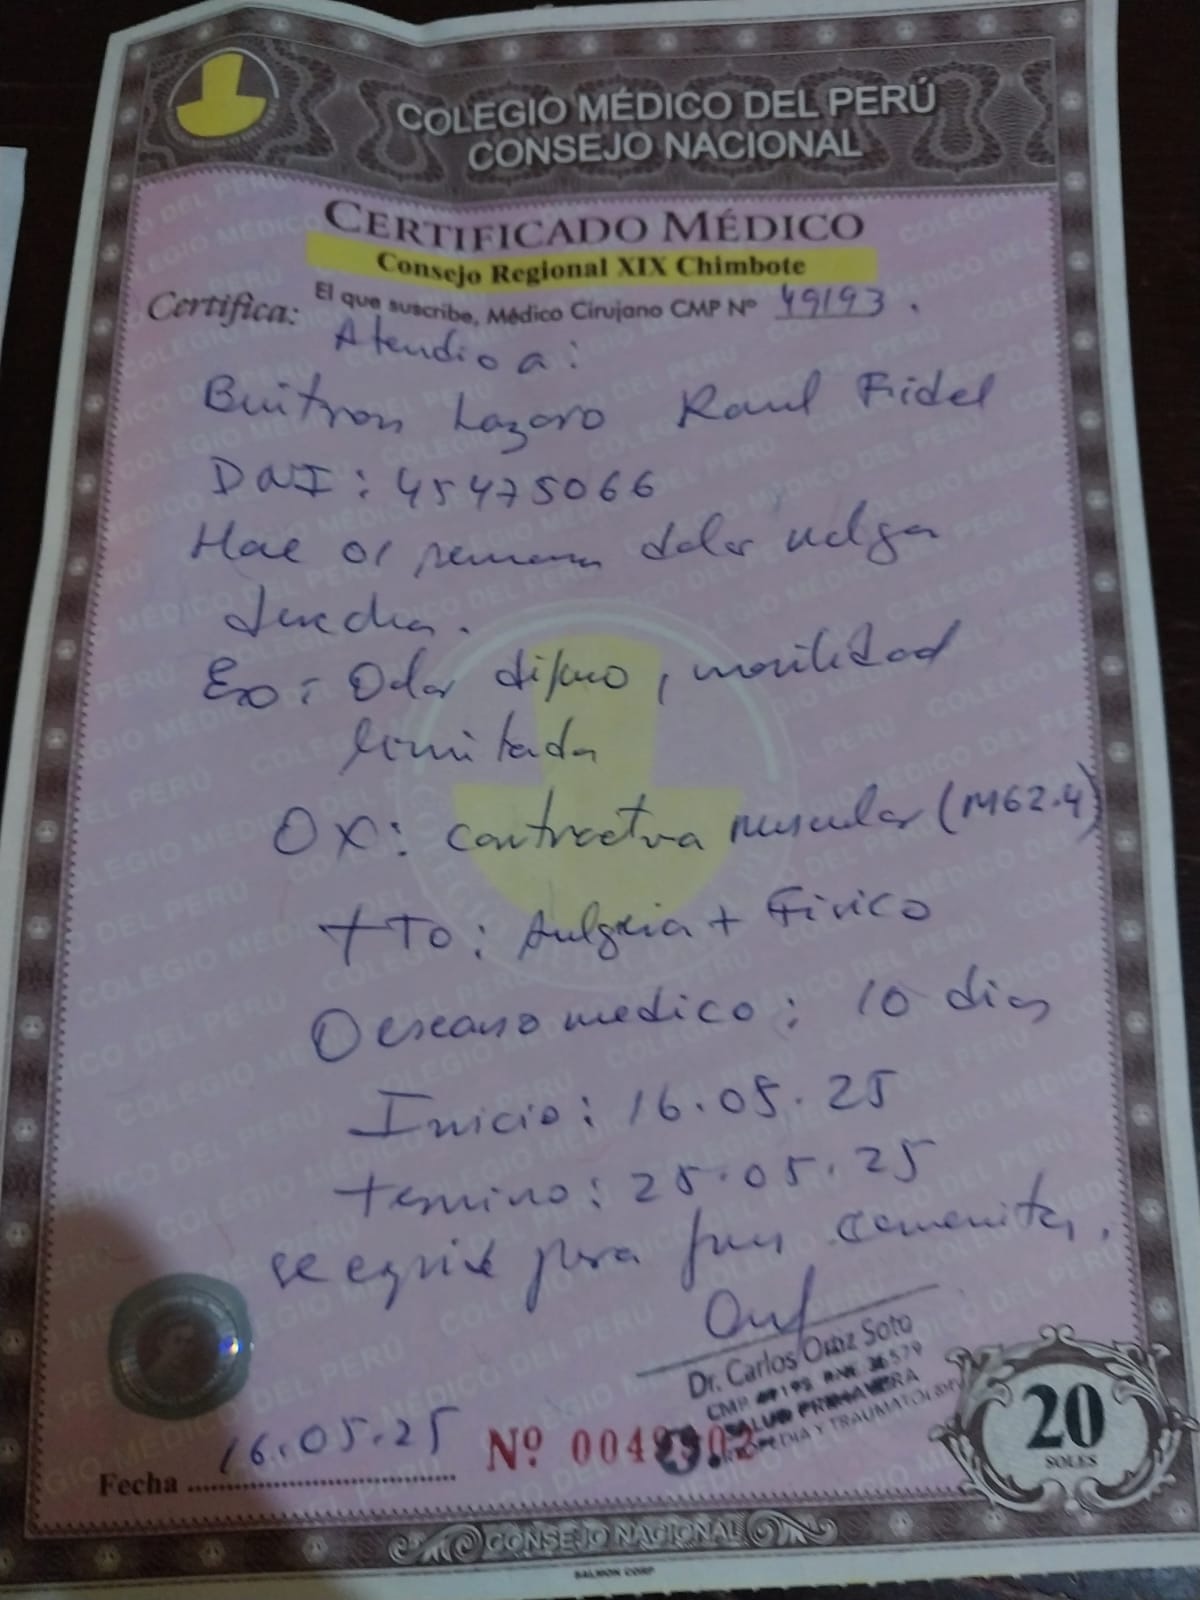 COLEGIO MÉDICO DEL PERÚ
CONSEJO NACIONAL
CERTIFICADO MÉDICO
Consejo Regional XIX Chimbote
Certifica: El que suscribe, Médico Cirujano CMP Nº 49193.
Atendio a:
Buitron Lazaro Raul Fidel
DNI: 45475066
Hace 01 semana dolor nalga
derecha.
Ex: Dolor difuso, movilidad
limitada
DX: contractura muscular (M62.4)
tto: Analgesia + Fisico
Descanso medico: 10 dias
Inicio: 16.05.25
termino: 25.05.25
se expide para fines
Dr. Carlos Soto
CMP
SALUD PRIMAVERA
Y TRAUMATOLOGÍA
Fecha 16.05.25 Nº
20
SOLES
CONSEJO NACIONAL
SALMON CORP